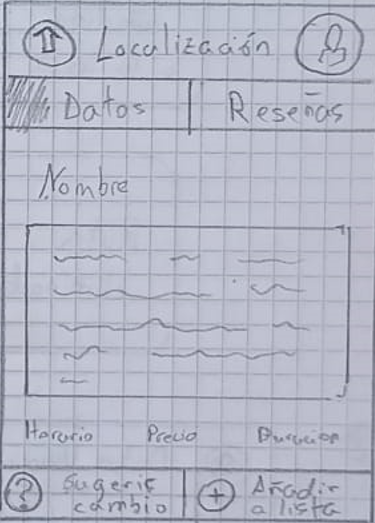 Localización
Datos Reseñas
Nombre
Horario Precio Duracion
? Sugerir cambio + Añadir a lista